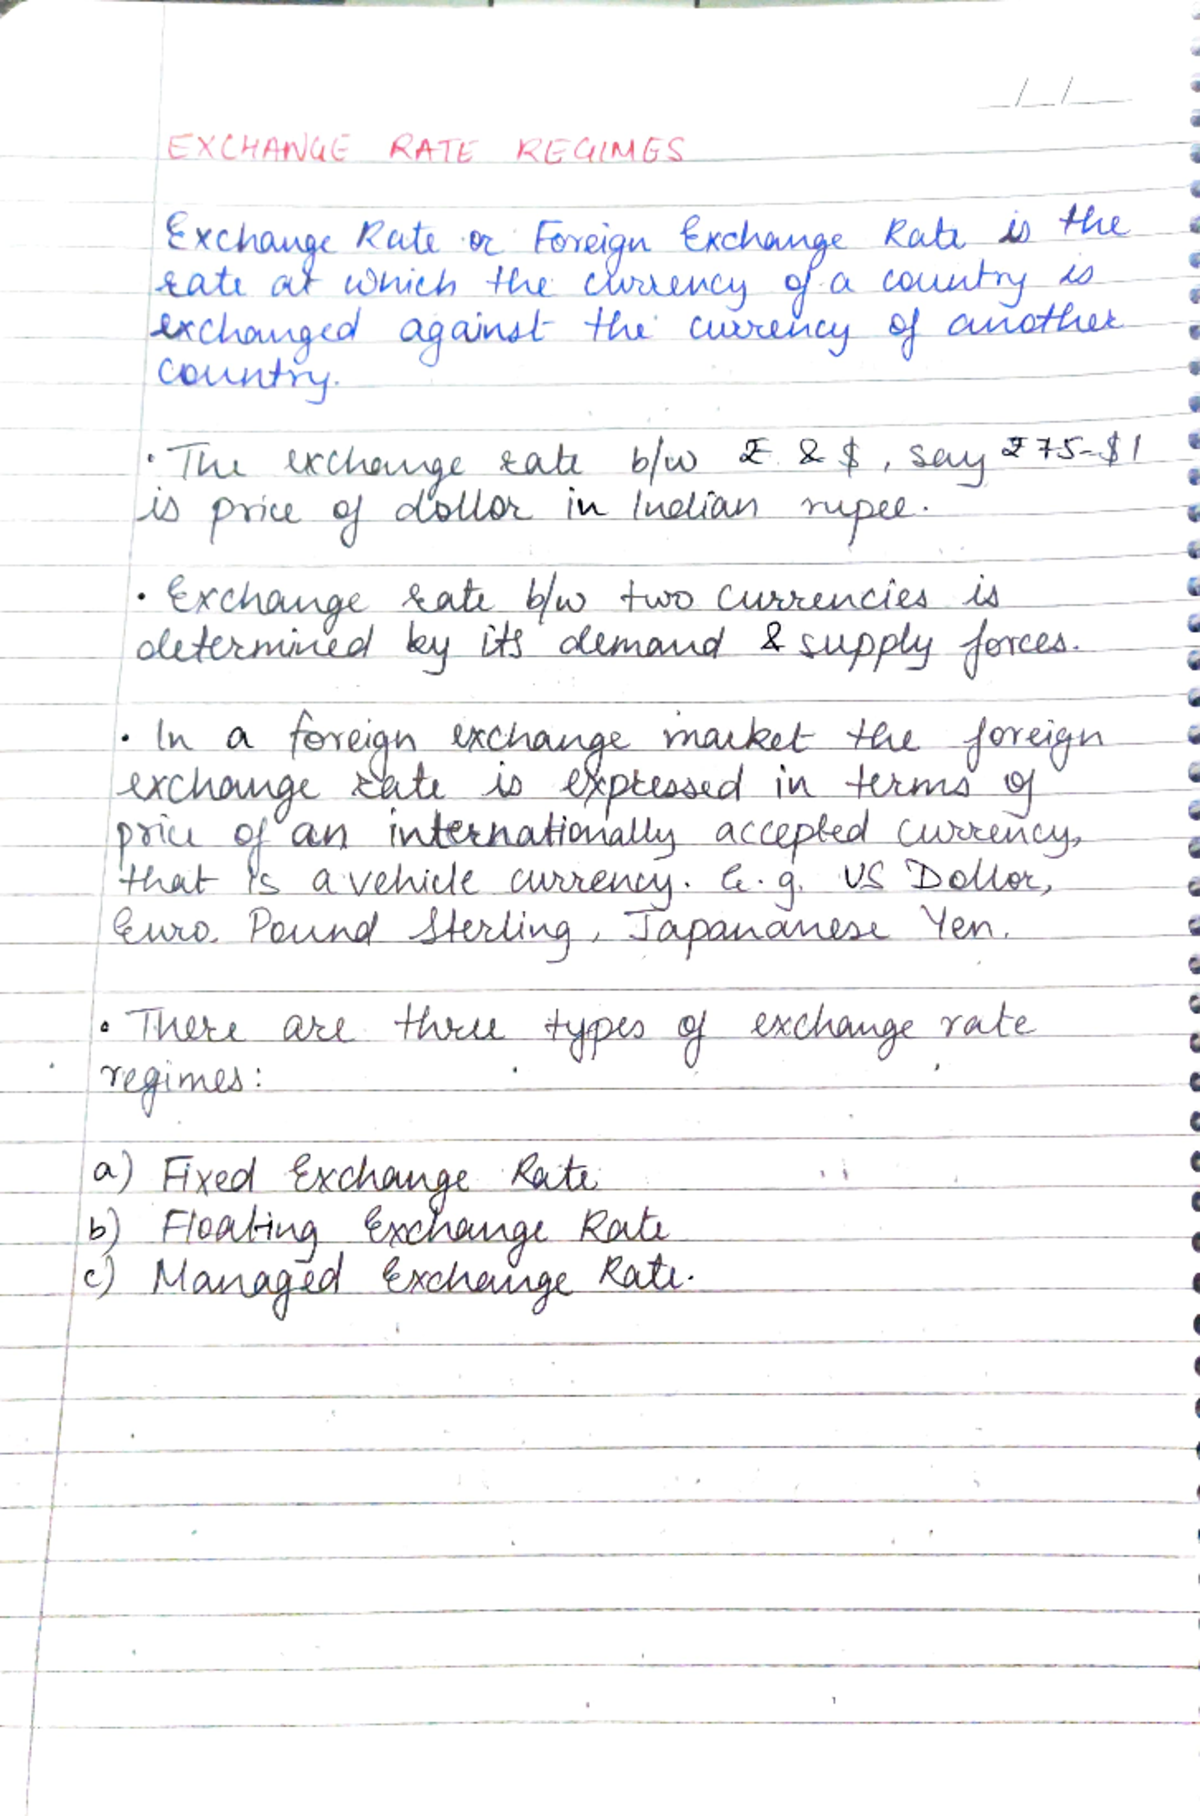 _/_/__
EXCHANGE RATE REGIMES
Exchange Rate or Foreign Exchange Rate is the
rate at which the currency of a country is
exchanged against the currency of another
country.
• The exchange rate b/w ₹ & $, say ₹75-$1
is price of dollar in Indian rupee.
• Exchange rate b/w two currencies is
determined by its demand & supply forces.
• In a foreign exchange market the foreign
exchange rate is expressed in terms of
price of an internationally accepted currency,
that is a vehicle currency. E.g. US Dollar,
Euro, Pound Sterling, Japananese Yen.
• There are three types of exchange rate
regimes:
a) Fixed Exchange Rate
b) Floating Exchange Rate
c) Managed Exchange Rate.